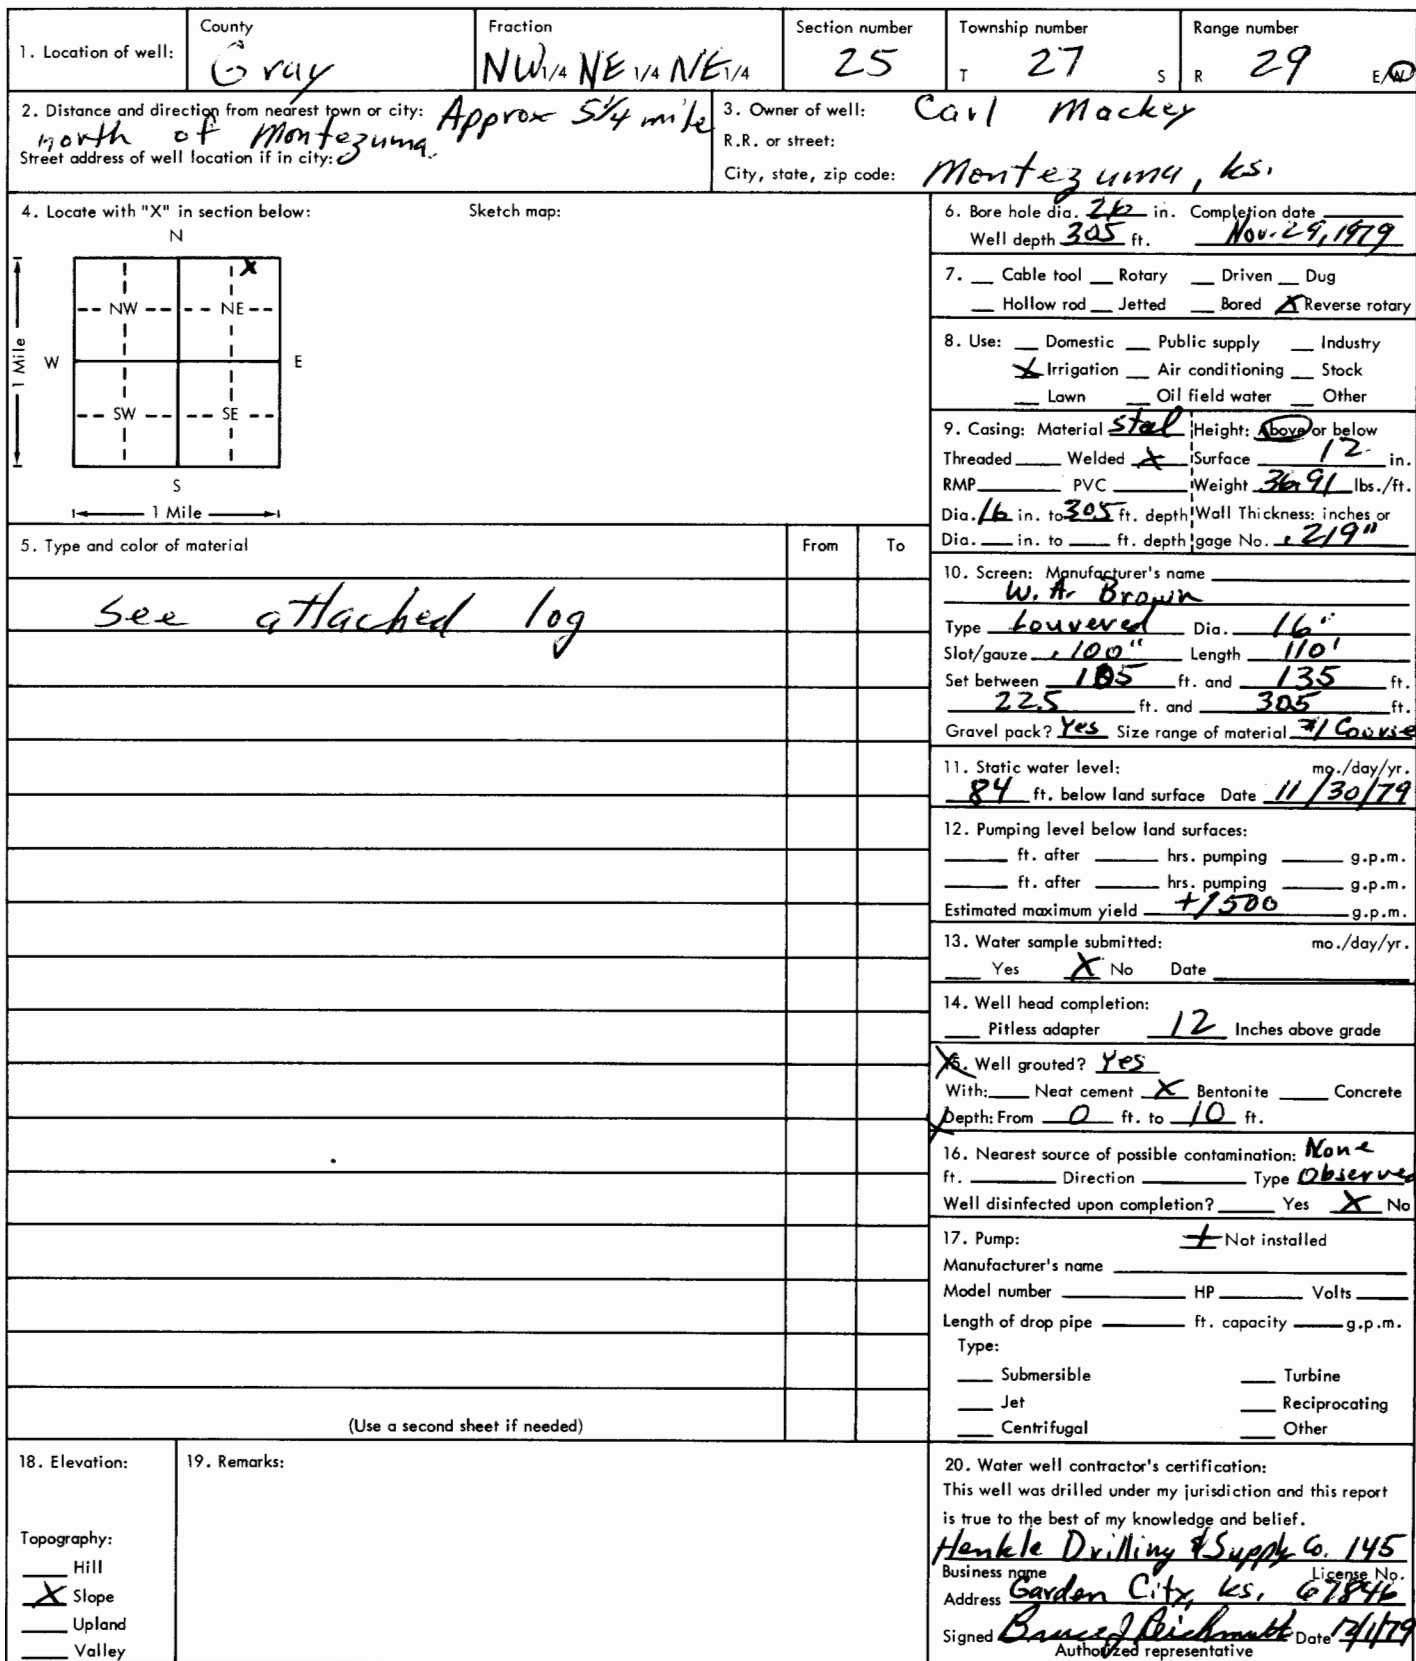 1. Location of well:
County
Gray
Fraction
NW 1/4 NE 1/4 NE 1/4
Section number
25
Township number
T 27 S
Range number
R 29 E/W
2. Distance and direction from nearest town or city: Approx 5 1/4 mile
north of Montezuma.
Street address of well location if in city:
3. Owner of well: Carl Mackey
R.R. or street:
City, state, zip code: Montezuma, Ks.
4. Locate with "X" in section below:
Sketch map:
N
X
NW NE
W E
1 Mile
SW SE
S
1 Mile
5. Type and color of material From To
See attached log
(Use a second sheet if needed)
6. Bore hole dia. 26 in. Completion date
Well depth 305 ft. Nov. 29, 1979
7. Cable tool Rotary Driven Dug
Hollow rod Jetted Bored X Reverse rotary
8. Use: Domestic Public supply Industry
X Irrigation Air conditioning Stock
Lawn Oil field water Other
9. Casing: Material Steel Height: Above or below
Threaded Welded X Surface 12 in.
RMP PVC Weight 36.91 lbs./ft.
Dia. 16 in. to 305 ft. depth Wall Thickness: inches or
Dia. in. to ft. depth gage No. .219"
10. Screen: Manufacturer's name
W. A. Brown
Type Louvered Dia. 16"
Slot/gauze .100" Length 110'
Set between 105 ft. and 135 ft.
225 ft. and 305 ft.
Gravel pack? Yes Size range of material #1 Course
11. Static water level: mo./day/yr.
84 ft. below land surface Date 11/30/79
12. Pumping level below land surfaces:
ft. after hrs. pumping g.p.m.
ft. after hrs. pumping g.p.m.
Estimated maximum yield +1500 g.p.m.
13. Water sample submitted: mo./day/yr.
Yes X No Date
14. Well head completion:
Pitless adapter 12 Inches above grade
15. Well grouted? Yes
With: Neat cement X Bentonite Concrete
Depth: From 0 ft. to 10 ft.
16. Nearest source of possible contamination: None
ft. Direction Type Observed
Well disinfected upon completion? Yes X No
17. Pump: X Not installed
Manufacturer's name
Model number HP Volts
Length of drop pipe ft. capacity g.p.m.
Type:
Submersible Turbine
Jet Reciprocating
Centrifugal Other
18. Elevation:
Topography:
Hill
X Slope
Upland
Valley
19. Remarks:
20. Water well contractor's certification:
This well was drilled under my jurisdiction and this report
is true to the best of my knowledge and belief.
Henkle Drilling & Supply Co. 145
Business name License No.
Address Garden City, Ks. 67846
Signed Bruce J Reichmuth Date 12/1/79
Authorized representative